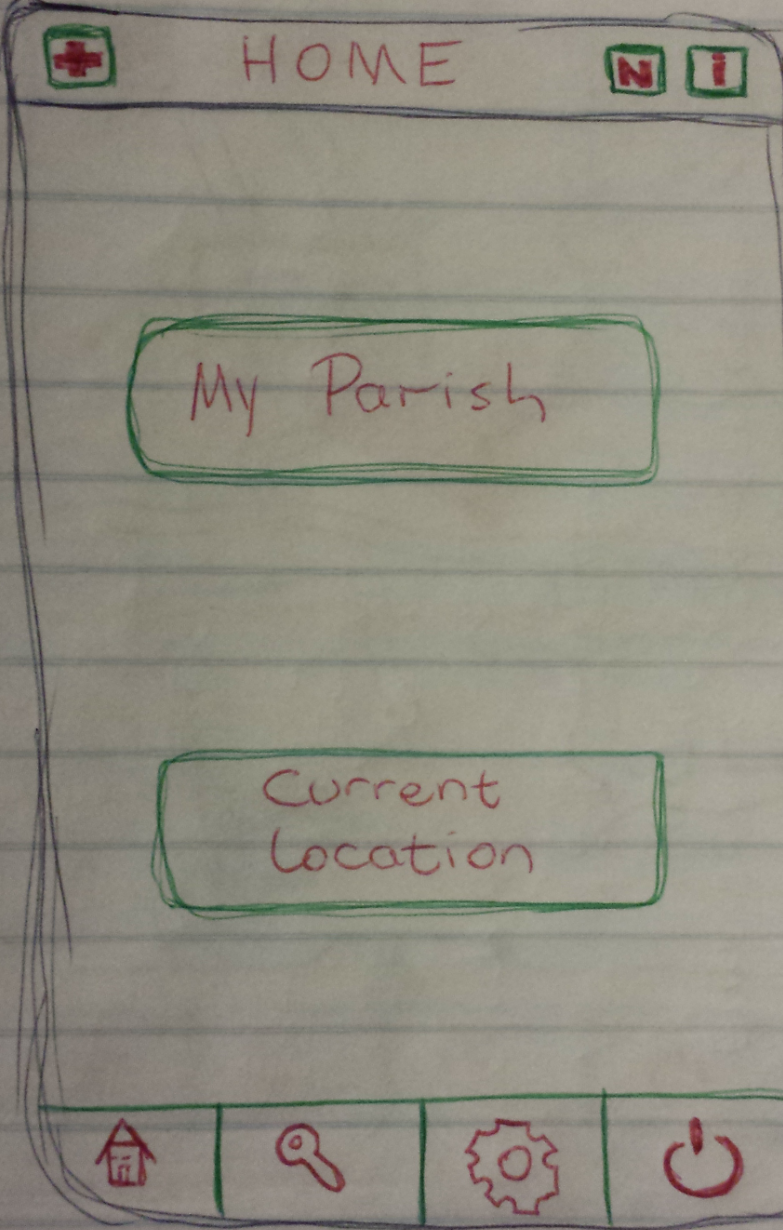 HOME N i
My Parish
Current
Location